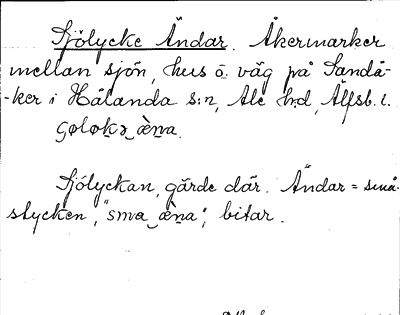 Sjölycke Ändar. Åkermarker
mellan sjön, hus o. väg på Sandå-
-ker i Hålanda s:n, Ale h:d, Älfsb. l.
Sjölyckan, gärde där. Ändar = små-
stycken, "sma æna", bitar.